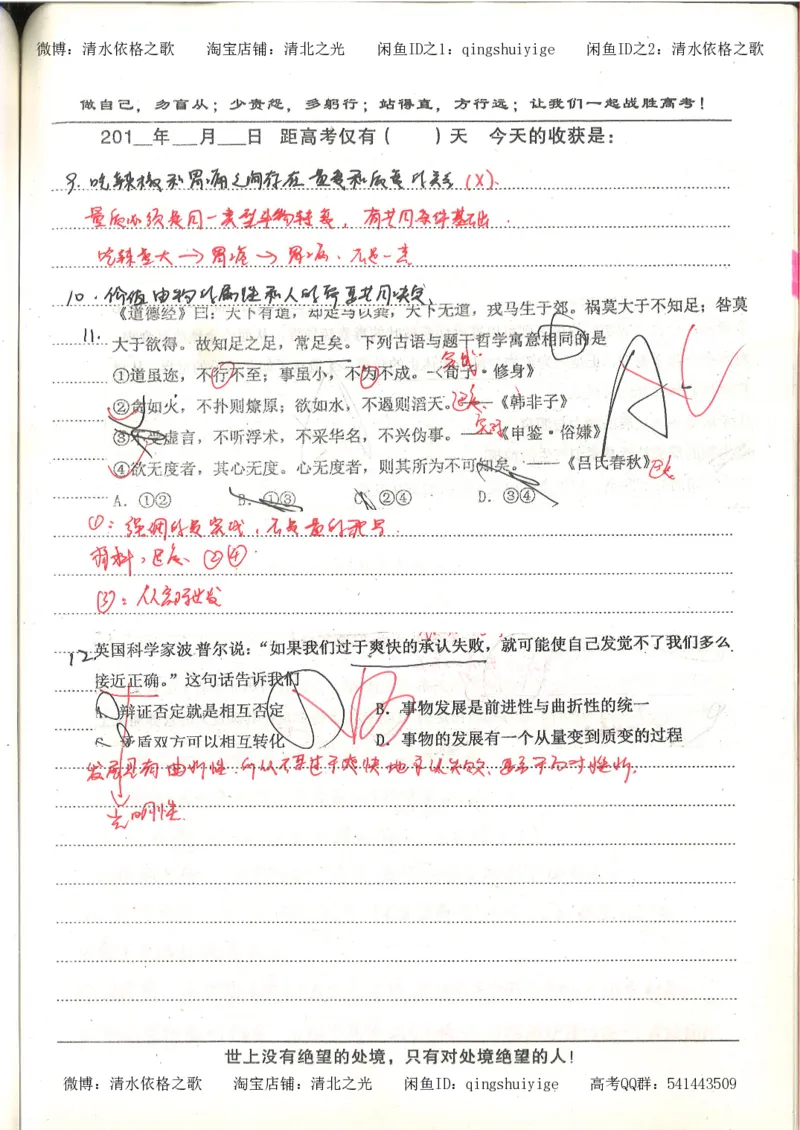 微博：清水依格之歌 淘宝店铺：清北之光 闲鱼ID之1：qingshuiyige 闲鱼ID之2：清水依格之歌
做自己，勿盲从；少责怨，多躬行；站得直，方行远；让我们一起战胜高考！
201__年___月___日 距高考仅有（ ）天 今天的收获是：
9. 吃辣椒和胃痛之间存在量变和质变的关系 (X).
量质必须是同一类型事物转变，有共同条件基础
吃辣 → 胃 → 胃病.
10. 价值由物的属性和人的需要共同决定
11. 《道德经》曰：天下有道，却走马以粪，天下无道，戎马生于郊。祸莫大于不知足；咎莫
大于欲得。故知足之足，常足矣。下列古语与题干哲学寓意相同的是 A
①道虽迩，不行不至；事虽小，不为不成。—《荀子·修身》 实践
②贪如火，不扑则燎原；欲如水，不遏则滔天。——《韩非子》
③不受虚言，不听浮术，不采华名，不兴伪事。——《申鉴·俗嫌》
④欲无度者，其心无度。心无度者，则其所为不可知矣。——《吕氏春秋》
A．①② B．①③ C．②④ D．③④
①：强调的是实践，不是量的积累.
材料：②④.
③：从实际出发
12. 英国科学家波普尔说：“如果我们过于爽快的承认失败，就可能使自己发觉不了我们多么
接近正确。”这句话告诉我们 B
A．辩证否定就是相互否定 B．事物发展是前进性与曲折性的统一
C．矛盾双方可以相互转化 D．事物的发展有一个从量变到质变的过程
发展具有曲折性，所以不要过于爽快地承认失败，要勇于面对挫折.
光明性.
世上没有绝望的处境，只有对处境绝望的人！
微博：清水依格之歌 淘宝店铺：清北之光 闲鱼ID：qingshuiyige 高考QQ群：541443509